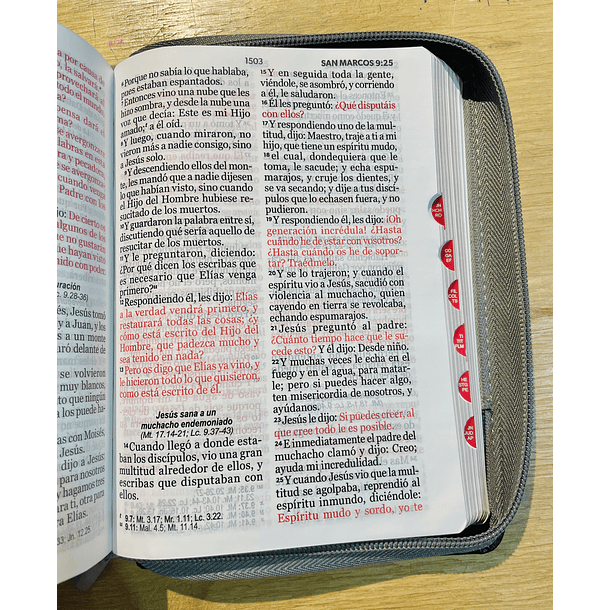 por causa de
la salvará.
todo el mundo
De cierto os
no gustarán
hayan visto
con poder.
Lc. 9.28-36)
Jesús tomó
a Juan, y los
a un monte
uró delante de
se volvieron
muy blancos,
que ningún
los puede ha-
con Moisés,
dijo a Jesús:
para nosotros
hagamos tres
ti, otra para
Elías.
33; Jn. 12.25
1503
SAN MARCOS 9:25
6 Porque no sabía lo que hablaba,
pues estaban espantados.
7 Entonces vino una nube que les
hizo sombra, y desde la nube una
voz que decía: Este es mi Hijo
amado; a él oíd.
8 Y luego, cuando miraron, no
vieron más a nadie consigo, sino
a Jesús solo.
9 Y descendiendo ellos del mon-
te, les mandó que a nadie dijesen
lo que habían visto, sino cuando
el Hijo del Hombre hubiese re-
sucitado de los muertos.
10 Y guardaron la palabra entre sí,
discutiendo qué sería aquello de
resucitar de los muertos.
11 Y le preguntaron, diciendo:
¿Por qué dicen los escribas que
es necesario que Elías venga
primero?
12 Respondiendo él, les dijo: Elías
a la verdad vendrá primero, y
restaurará todas las cosas; ¿y
cómo está escrito del Hijo del
Hombre, que padezca mucho y
sea tenido en nada?
13 Pero os digo que Elías ya vino, y
le hicieron todo lo que quisieron,
como está escrito de él.
Jesús sana a un
muchacho endemoniado
(Mt. 17.14-21; Lc. 9.37-43)
14 Cuando llegó a donde esta-
ban los discípulos, vio una gran
multitud alrededor de ellos, y
escribas que disputaban con
ellos.
9.7: Mt. 3.17; Mr. 1.11; Lc. 3.22.
9.11: Mal. 4.5; Mt. 11.14.
15 Y en seguida toda la gente,
viéndole, se asombró, y corriendo
a él, le saludaron.
16 Él les preguntó: ¿Qué disputáis
con ellos?
17 Y respondiendo uno de la mul-
titud, dijo: Maestro, traje a ti a mi
hijo, que tiene un espíritu mudo,
18 el cual, dondequiera que le
toma, le sacude; y echa espu-
marajos, y cruje los dientes, y
se va secando; y dije a tus discí-
pulos que lo echasen fuera, y no
pudieron.
19 Y respondiendo él, les dijo: ¡Oh
generación incrédula! ¿Hasta
cuándo he de estar con vosotros?
¿Hasta cuándo os he de sopor-
tar? Traédmelo.
20 Y se lo trajeron; y cuando el
espíritu vio a Jesús, sacudió con
violencia al muchacho, quien
cayendo en tierra se revolcaba,
echando espumarajos.
21 Jesús preguntó al padre:
¿Cuánto tiempo hace que le su-
cede esto? Y él dijo: Desde niño.
22 Y muchas veces le echa en el
fuego y en el agua, para matar-
le; pero si puedes hacer algo,
ten misericordia de nosotros, y
ayúdanos.
23 Jesús le dijo: Si puedes creer, al
que cree todo le es posible.
24 E inmediatamente el padre del
muchacho clamó y dijo: Creo;
ayuda mi incredulidad.
25 Y cuando Jesús vio que la mul-
titud se agolpaba, reprendió al
espíritu inmundo, diciéndole:
Espíritu mudo y sordo, yo te